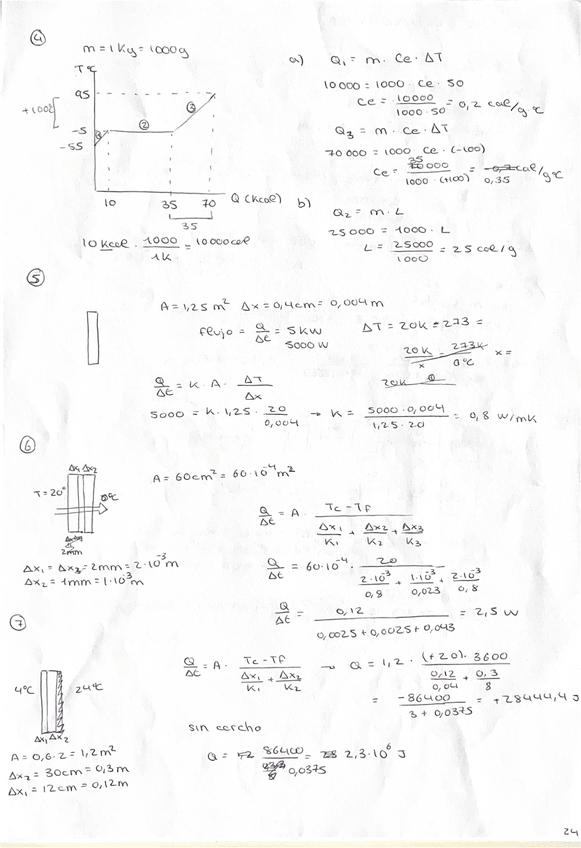 ④
m = 1 Kg = 1000g
T ºC
95
+100
-5
-55
① ② ③
10 35 70 Q (Kcal)
35
10 Kcal · 1000/1K = 10000 cal
a) Q₁ = m · Ce · ΔT
10 000 = 1000 · Ce · 50
Ce = 10000/1000·50 = 0,2 cal/g ºC
Q₃ = m · Ce · ΔT
70 000 = 1000 Ce · (-100)
Ce = 35 000/1000·(+100) = 0,35 cal/g ºC
b) Q₂ = m · L
25000 = 1000 · L
L = 25000/1000 = 25 cal/g
⑤
A = 1,25 m² Δx = 0,4cm = 0,004 m
flujo = Q/Δt = 5 KW
5000 W
ΔT = 20K - 273 =
20K/x 273K/0ºC x =
20K
Q/Δt = K · A · ΔT/Δx
5000 = K · 1,25 · 20/0,004 → K = 5000·0,004/1,25·20 = 0,8 W/mK
⑥
Δx₁ Δx₂
T = 20º
0ºC
2mm
A = 60cm² = 60·10⁻⁴ m²
Q/Δt = A · Tc - Tf / Δx₁/K₁ + Δx₂/K₂ + Δx₃/K₃
Δx₁ = Δx₃ = 2mm = 2·10⁻³ m
Δx₂ = 1mm = 1·10⁻³ m
Q/Δt = 60·10⁻⁴ · 20 / 2·10⁻³/0,8 + 1·10⁻³/0,023 + 2·10⁻³/0,8
Q/Δt = 0,12 / 0,0025 + 0,0025 + 0,043 = 2,5 W
⑦
4ºC 24ºC
Δx₁ Δx₂
A = 0,6 · 2 = 1,2 m²
Δx₂ = 30cm = 0,3 m
Δx₁ = 12cm = 0,12m
Q/Δt = A · Tc - Tf / Δx₁/K₁ + Δx₂/K₂ → Q = 1,2 · (+20) · 3600 / 0,12/0,04 + 0,3/8
= -86400 / 3 + 0,0375 = +28444,4 J
sin corcho
Q = 86400 / 0,0375 = 2,3·10⁶ J
24